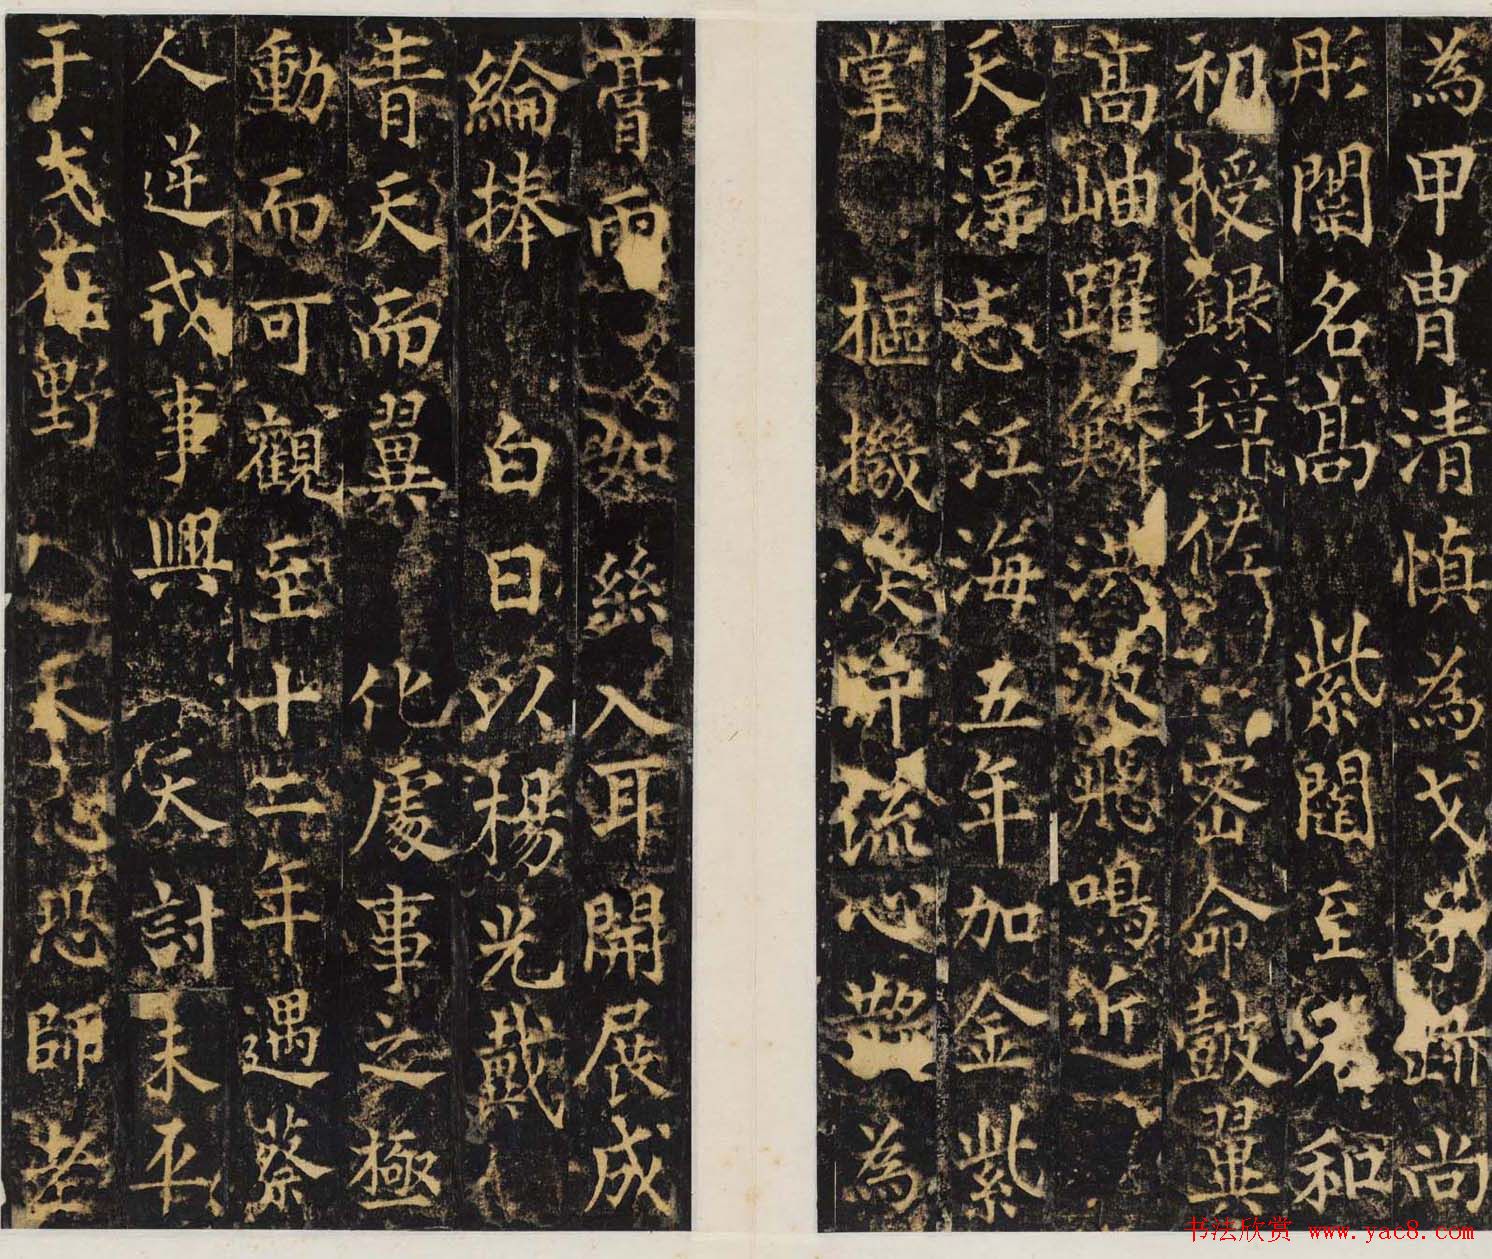 為甲胄清慎為戈矛跡尚
彤闈名高 紫闥至名和
初授銀璋佐 密命鼓翼
高岫躍鱗洪波飛鳴近
天瀑志江海五年加金紫
掌樞機決流心 為
膏雨 如 絲入耳開展成
綸捧 白日以楊光戴
青天而翼 化處事之極
動而可觀至十二年遇蔡
人逆戎事興 天討未平
于戈在野 不 恐師老
书法欣赏 www.yac8.com